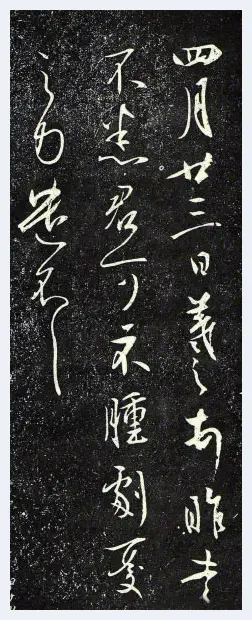 四月廿三日羲之頓首昨書
不悉君可不腫劇憂
之力遣不